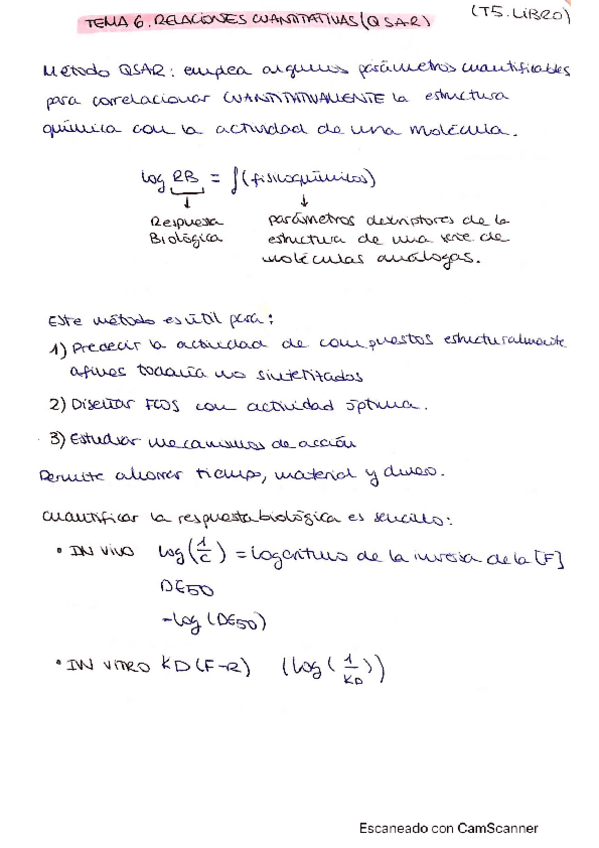 TEMA 6. RELACIONES CUANTITATIVAS (QSAR)
(T5. LIBRO)
Método QSAR: emplea algunos parámetros cuantificables
para correlacionar CUANTITATIVAMENTE la estructura
química con la actividad de una molécula.
log RB = ∫(fisicoquímicos)
↓ ↓
Respuesta Biológica
parámetros descriptores de la
estructura de una serie de
moléculas análogas.
Este método es útil para:
1) Predecir la actividad de compuestos estructuralmente
afines todavía no sintetizados
2) Diseñar FCOS con actividad óptima.
3) Estudiar mecanismos de acción
Permite ahorrar tiempo, material y dinero.
Cuantificar la respuesta biológica es sencillo:
• IN VIVO log(1/C) = Logaritmo de la inversa de la [F]
DE50
-log (DE50)
• IN VITRO KD (F-R) (log (1/KD))
Escaneado con CamScanner